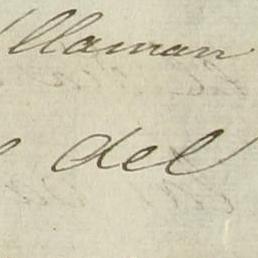 llaman
del